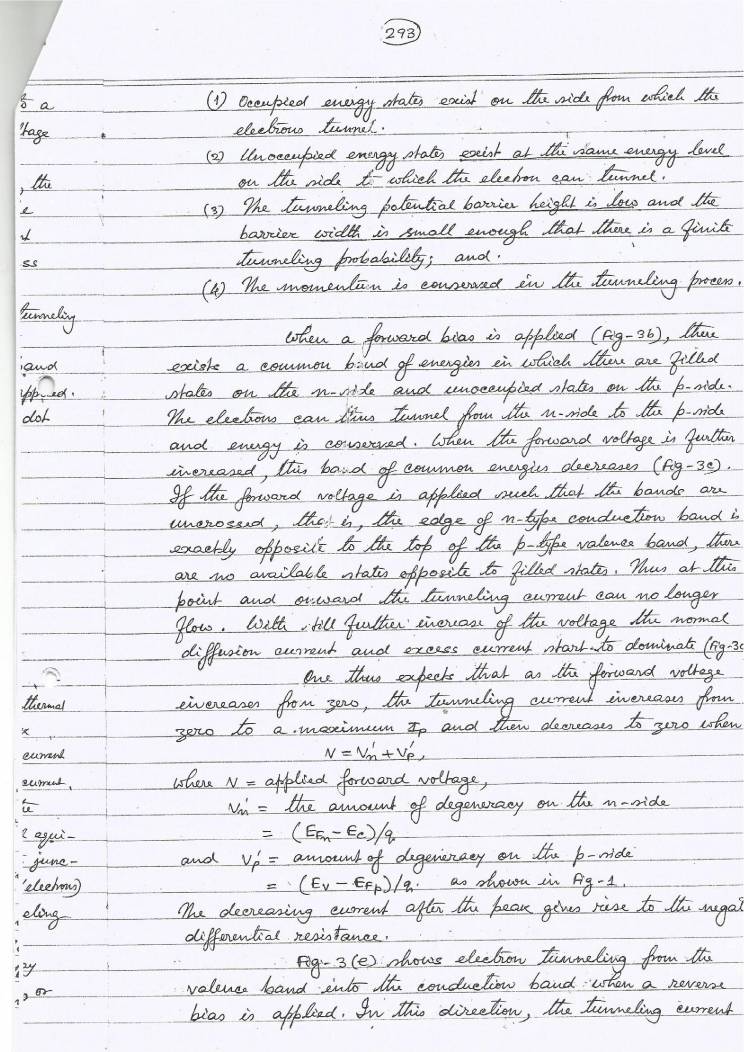 293
(1) Occupied energy states exist on the side from which the
electrons tunnel.
(2) Unoccupied energy states exist at the same energy level
on the side to which the electron can tunnel.
(3) The tunneling potential barrier height is low and the
barrier width is small enough that there is a finite
tunneling probability; and.
(4) The momentum is conserved in the tunneling process.
When a forward bias is applied (Fig-3b), there
exists a common band of energies in which there are filled
states on the n-side and unoccupied states on the p-side.
The electrons can thus tunnel from the n-side to the p-side
and energy is conserved. When the forward voltage is further
increased, this band of common energies decreases (Fig-3c).
If the forward voltage is applied such that the bands are
uncrossed, that is, the edge of n-type conduction band is
exactly opposite to the top of the p-type valence band, there
are no available states opposite to filled states. Thus at this
point and onward the tunneling current can no longer
flow. With still further increase of the voltage the normal
diffusion current and excess current start to dominate (Fig-3c
One thus expects that as the forward voltage
increases from zero, the tunneling current increases from
zero to a maximum Ip and then decreases to zero when
V = Vn' + Vp',
where V = applied forward voltage,
Vn' = the amount of degeneracy on the n-side
= (EFn - Ec)/q
and Vp' = amount of degeneracy on the p-side
= (Ev - EFp)/q. as shown in Fig-1.
The decreasing current after the peak gives rise to the negat
differential resistance.
Fig-3(e) shows electron tunneling from the
valence band into the conduction band when a reverse
bias is applied. In this direction, the tunneling current
to a
tage
, the
e
d
ss
tunneling
and
dot
thermal
x
current
current,
te
junc-
electrons)
eling
ry
, or